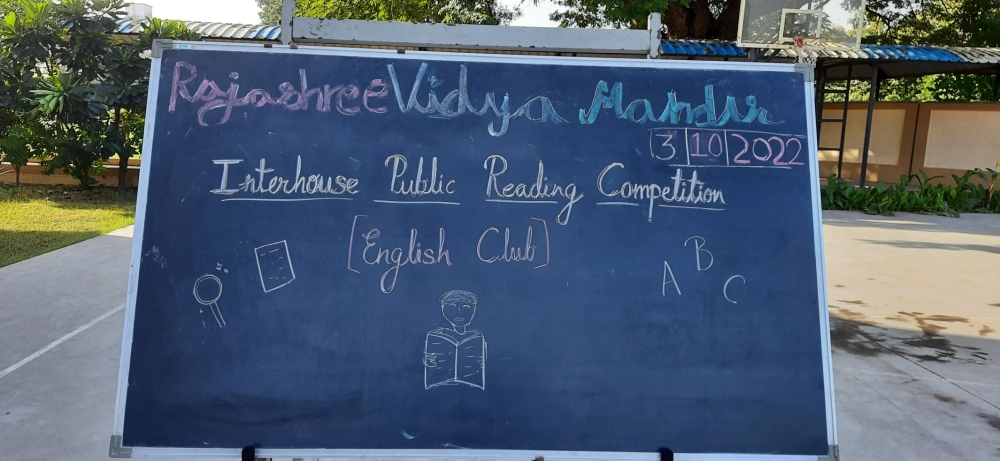 Rajashree Vidya Mandir
3 10 2022
Interhouse Public Reading Competition
[English Club]
A B C